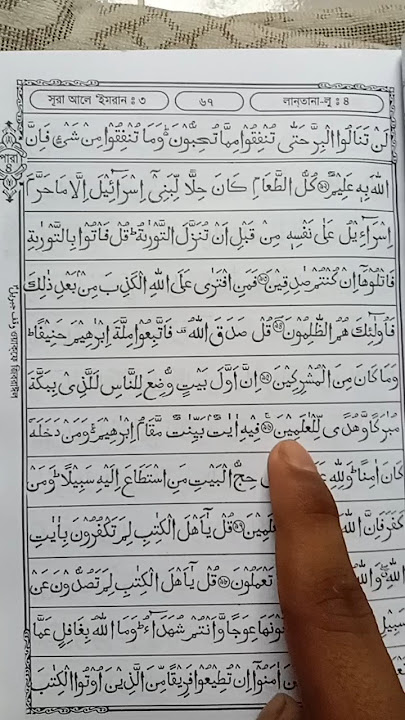 সূরা আলে 'ইমরান : ৩ ৬৭ লান্‌তানা-লূ : ৪
পারা ৪
لَنْ تَنَالُوا الْبِرَّ حَتّٰى تُنْفِقُوْا مِمَّا تُحِبُّوْنَ ؕ وَمَا تُنْفِقُوْا مِنْ شَىْءٍ فَاِنَّ
اللّٰهَ بِهٖ عَلِيْمٌ ﴿۹۲﴾ كُلُّ الطَّعَامِ كَانَ حِلًّا لِّبَنِىْۤ اِسْرَآئِيْلَ اِلَّا مَا حَرَّمَ
اِسْرَآءِيْلُ عَلٰى نَفْسِهٖ مِنْ قَبْلِ اَنْ تُنَزَّلَ التَّوْرٰىةُ ؕ قُلْ فَاْتُوْا بِالتَّوْرٰىةِ
فَاتْلُوْهَاۤ اِنْ كُنْتُمْ صٰدِقِيْنَ ﴿۹۳﴾ فَمَنِ افْتَرٰى عَلَى اللّٰهِ الْكَذِبَ مِنْۢ بَعْدِ ذٰلِكَ
فَاُولٰٓئِكَ هُمُ الظّٰلِمُوْنَ ﴿۹۴﴾ قُلْ صَدَقَ اللّٰهُ ۟ فَاتَّبِعُوْا مِلَّةَ اِبْرٰهِيْمَ حَنِيْفًا ؕ
وَمَا كَانَ مِنَ الْمُشْرِكِيْنَ ﴿۹۵﴾ اِنَّ اَوَّلَ بَيْتٍ وُّضِعَ لِلنَّاسِ لَلَّذِىْ بِبَكَّةَ
مُبٰرَكًا وَّهُدًى لِّلْعٰلَمِيْنَ ﴿۹۶﴾ فِيْهِ اٰيٰتٌۢ بَيِّنٰتٌ مَّقَامُ اِبْرٰهِيْمَ ۚ وَمَنْ دَخَلَهٗ
كَانَ اٰمِنًا ؕ وَلِلّٰهِ حِجُّ الْبَيْتِ مَنِ اسْتَطَاعَ اِلَيْهِ سَبِيْلًا ؕ وَمَنْ
كَفَرَ فَاِنَّ اللّٰهَ قُلْ يٰۤاَهْلَ الْكِتٰبِ لِمَ تَكْفُرُوْنَ بِاٰيٰتِ
اللّٰهِ ۖ وَاللّٰهُ تَعْمَلُوْنَ ﴿۹۸﴾ قُلْ يٰۤاَهْلَ الْكِتٰبِ لِمَ تَصُدُّوْنَ عَنْ
سَبِيْلِ عِوَجًا وَّاَنْتُمْ شُهَدَآءُ ؕ وَمَا اللّٰهُ بِغَافِلٍ عَمَّا
اٰمَنُوْۤا اِنْ تُطِيْعُوْا فَرِيْقًا مِّنَ الَّذِيْنَ اُوْتُوا الْكِتٰبَ